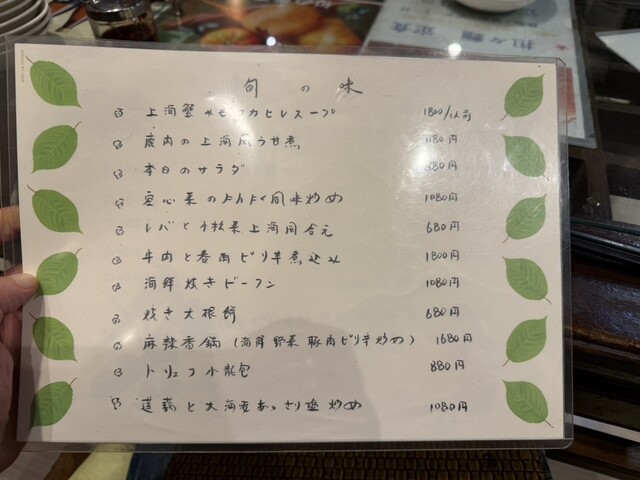 旬の味
上海蟹みそフカヒレスープ 1800/1人前
鹿肉の上海風うま煮 1180円
本日のサラダ 880円
空心菜の 風味炒め 1080円
レバと小松菜上海風合え 680円
牛肉と春雨ピリ辛煮込み 1800円
海鮮焼きビーフン 1080円
焼き大根餅 680円
麻辣香鍋(海鮮野菜豚肉ピリ辛炒め) 1680円
トリュフ小龍包 880円
蓮藕と大海老あっさり塩炒め 1080円
担々麺 定食